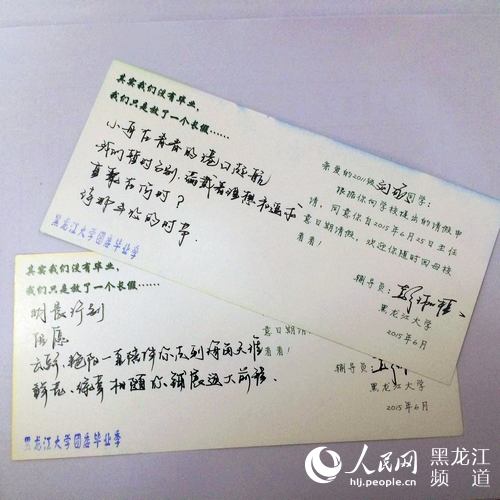 其实我们没有毕业，
我们只是放了一个长假……
小舟在青春的港口起航
我们暂时分别，满载着理想和追求
直乘在何时？
待那丰收的时节.
黑龙江大学团委毕业季
亲爱的2011级 同学：
根据你向学校提出的请假申
请，同意你自2015年6月25日至任
意日期请假，欢迎你随时回母校
看看！
辅导员：
黑龙江大学
2015年6月
其实我们没有毕业，
我们只是放了一个长假……
明晨行别
但愿
云彩、艳阳一直陪伴你走到海角天涯
鲜花、绿草相随你铺展远大前程.
黑龙江大学团委毕业季
意日期请
看看！
辅导员
黑龙江大学
2015年6月
人民网
hlj.people.cn
黑龙江
频道